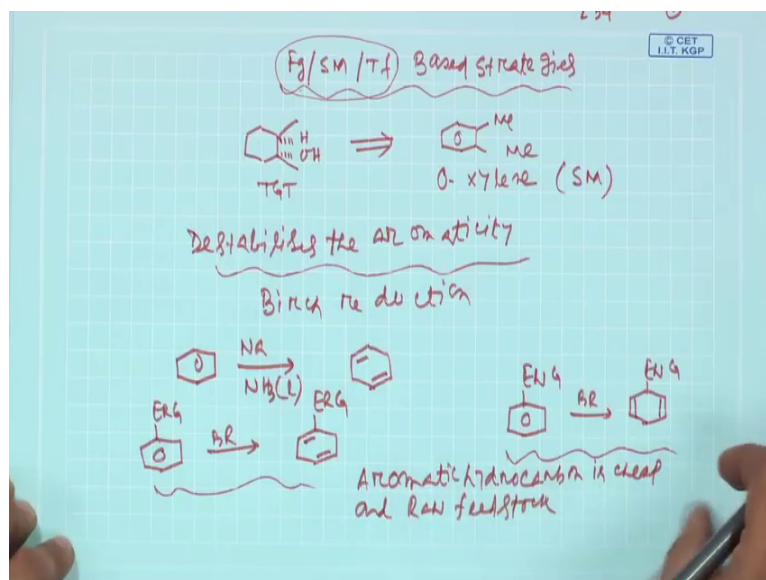 © CET
I.I.T. KGP
Fg/SM/Tf Based Strategies
H
OH
TGT
Me
Me
O- xylene (SM)
Destabilises the aromaticity
Birch reduction
Na
NH3(l)
ERG
BR
ERG
EWG
BR
EWG
Aromatic hydrocarbon is cheap
and Raw feedstock